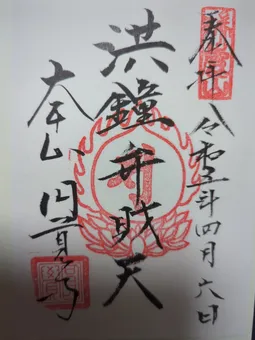 奉拝
令和五年四月六日
洪鐘弁財天
大本山円覚寺